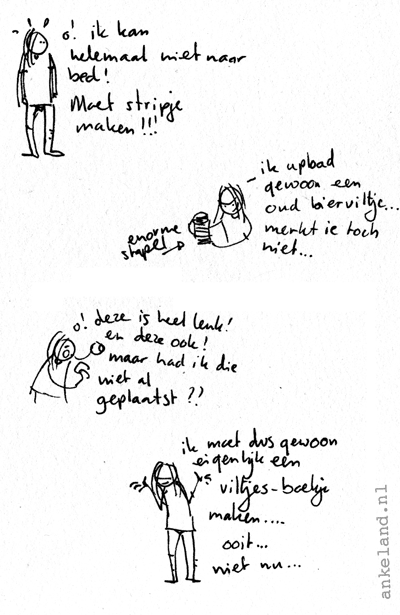 o! ik kan
helemaal niet naar
bed!
Moet stripje
maken!!!
ik upload
gewoon een
oud bierviltje...
merkt ie toch
niet...
enorme
stapel
o! deze is heel leuk!
en deze ook!
maar had ik die
niet al
geplaatst??
ik moet dus gewoon
eigenlijk een
viltjes-boekje
maken....
ooit...
niet nu...
ankeland.nl